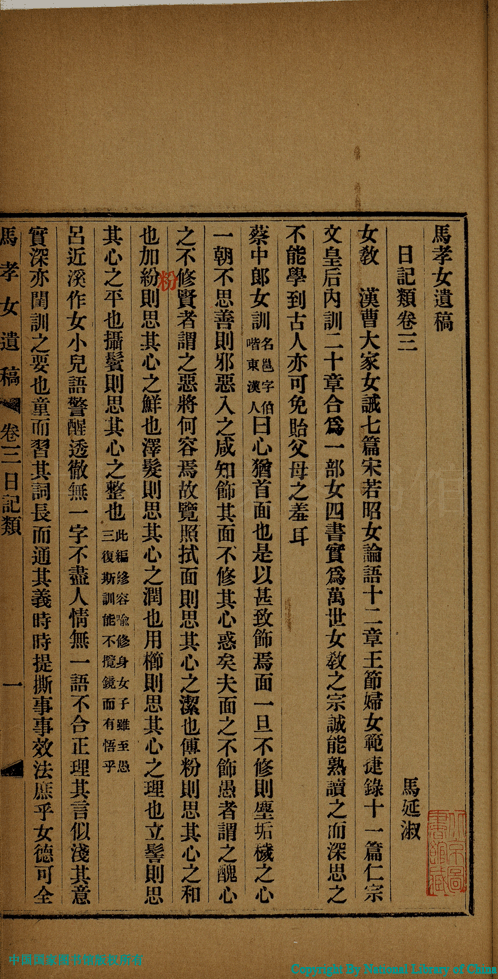 馬孝女遺稿
日記類卷三
馬延淑
女敎　漢曹大家女誡七篇宋若昭女論語十二章王節婦女範捷錄十一篇仁宗
文皇后內訓二十章合爲一部女四書實爲萬世女敎之宗誠能熟讀之而深思之
不能學到古人亦可免貽父母之羞耳
蔡中郎女訓名邕字伯喈東漢人曰心猶首面也是以甚致飾焉面一旦不修則塵垢穢之心
一朝不思善則邪惡入之咸知飾其面不修其心惑矣夫面之不飾愚者謂之醜心
之不修賢者謂之惡將何容焉故覽照拭面則思其心之潔也傅粉則思其心之和
也加紛則思其心之鮮也澤髮則思其心之潤也用櫛則思其心之理也立髻則思
粉
其心之平也攝鬢則思其心之整也此編修容喻修身女子雖至愚三復斯訓能不攬鏡而有悟乎
呂近溪作女小兒語警醒透徹無一字不盡人情無一語不合正理其言似淺其意
實深亦閨訓之要也童而習其詞長而通其義時時提撕事事效法庶乎女德可全
馬孝女遺稿　卷三日記類　一
中國國家圖書館版權所有
Copyright By National Library of China